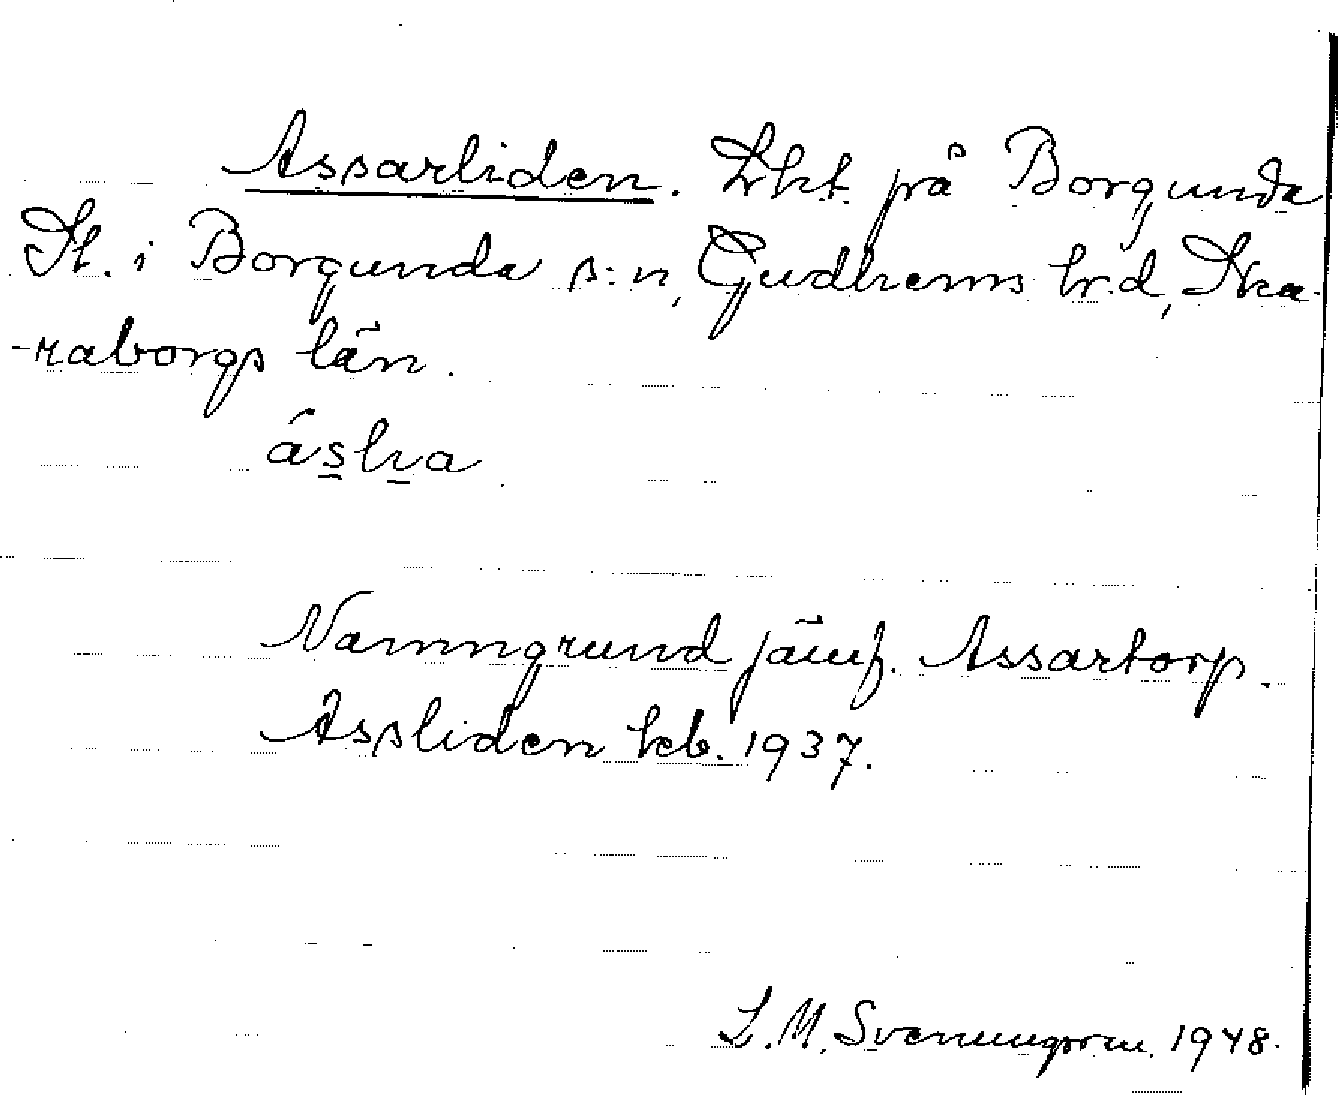 Assarliden. Lht. på Borgunda
St. i Borgunda s:n, Gudhems hr.d, Ska-
-raborgs län.
áslia
Namngrund jämf. Assartorp.
Assliden kb. 1937.
L. M. Svenungsson. 1948.